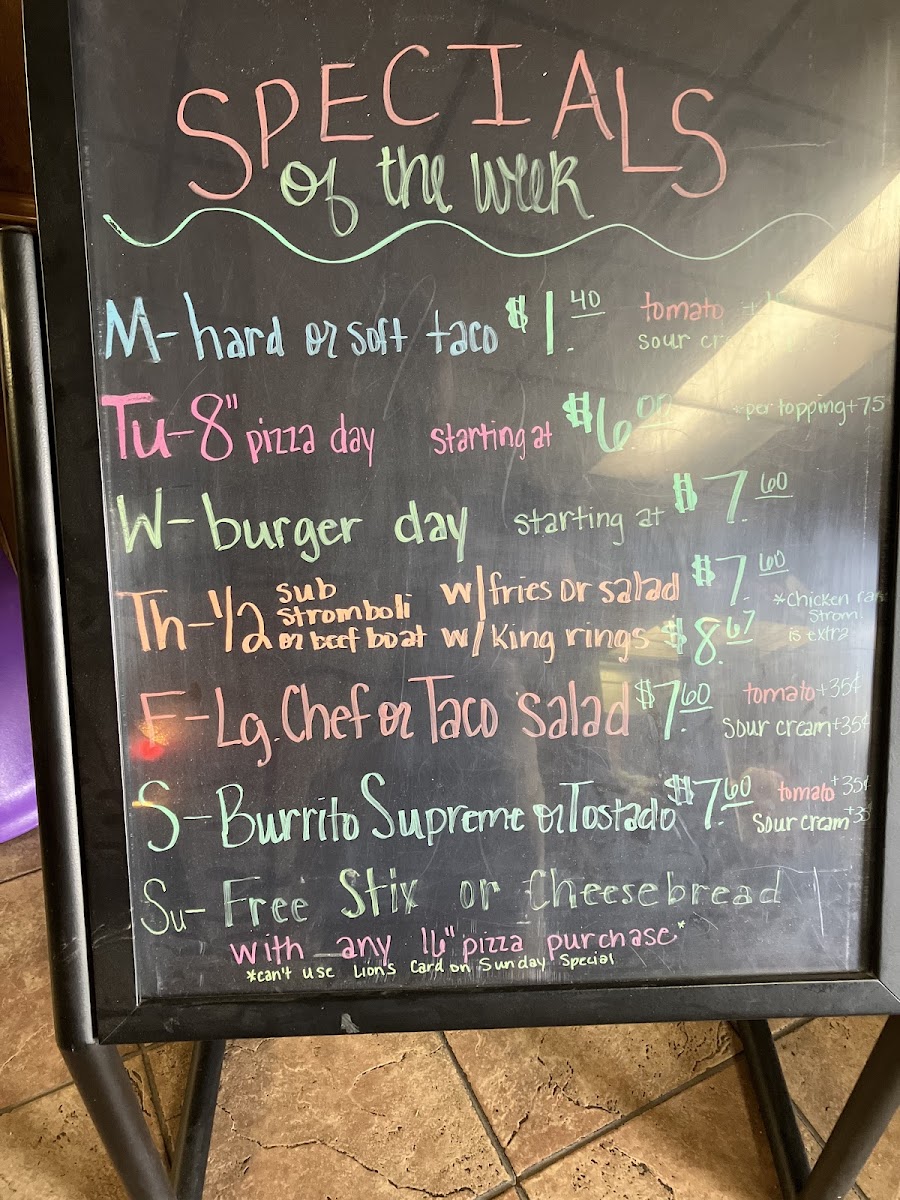 SPECIALS
of the week
M- hard or soft taco $1.40 tomato
sour
Tu-8" pizza day starting at $6.00 per topping+75
W- burger day starting at $7.60
Th-1/2 sub stromboli or beef boat w/fries or salad $7.60
w/King rings $8.67
*Chicken
Strom
is extra
F-Lg. Chef or Taco Salad $7.60 tomato+35¢
Sour cream+35¢
S- Burrito Supreme or Tostado $7.60 tomato+35¢
Sour cream
Su- Free Stix or Cheesebread
with any 16" pizza purchase*
*can't use Lion's Card on Sunday Special